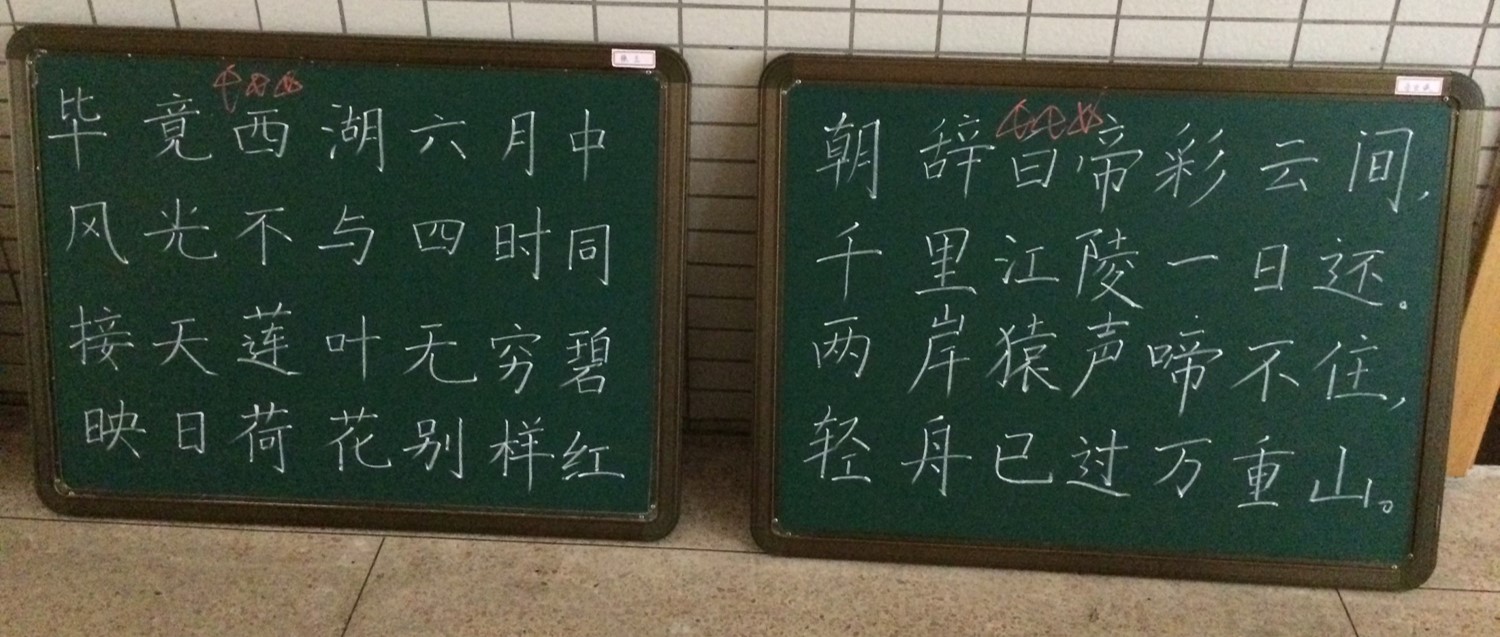 毕竟西湖六月中
风光不与四时同
接天莲叶无穷碧
映日荷花别样红
朝辞白帝彩云间，
千里江陵一日还。
两岸猿声啼不住，
轻舟已过万重山。